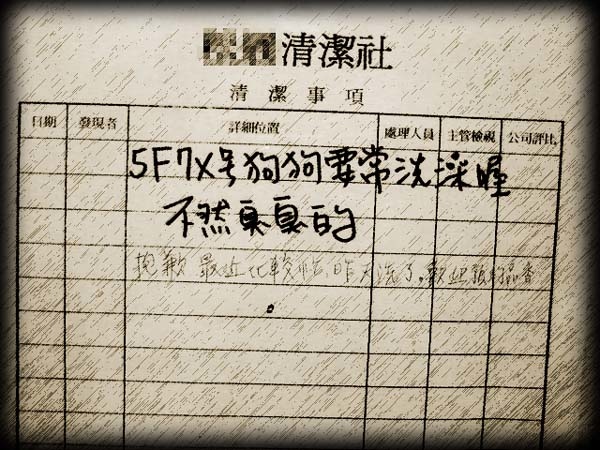 清潔社
清潔事項
日期 發現者 詳細位置 處理人員 主管檢視 公司評比
5F7X号狗狗要常洗澡喔
不然臭臭的
抱歉 最近比較忙,昨天洗了,歡迎